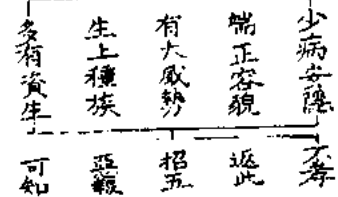 少病安隱
端正容貌
有大威勢
生上種族
多有資生
不孝
返此
招五
惡報
可知